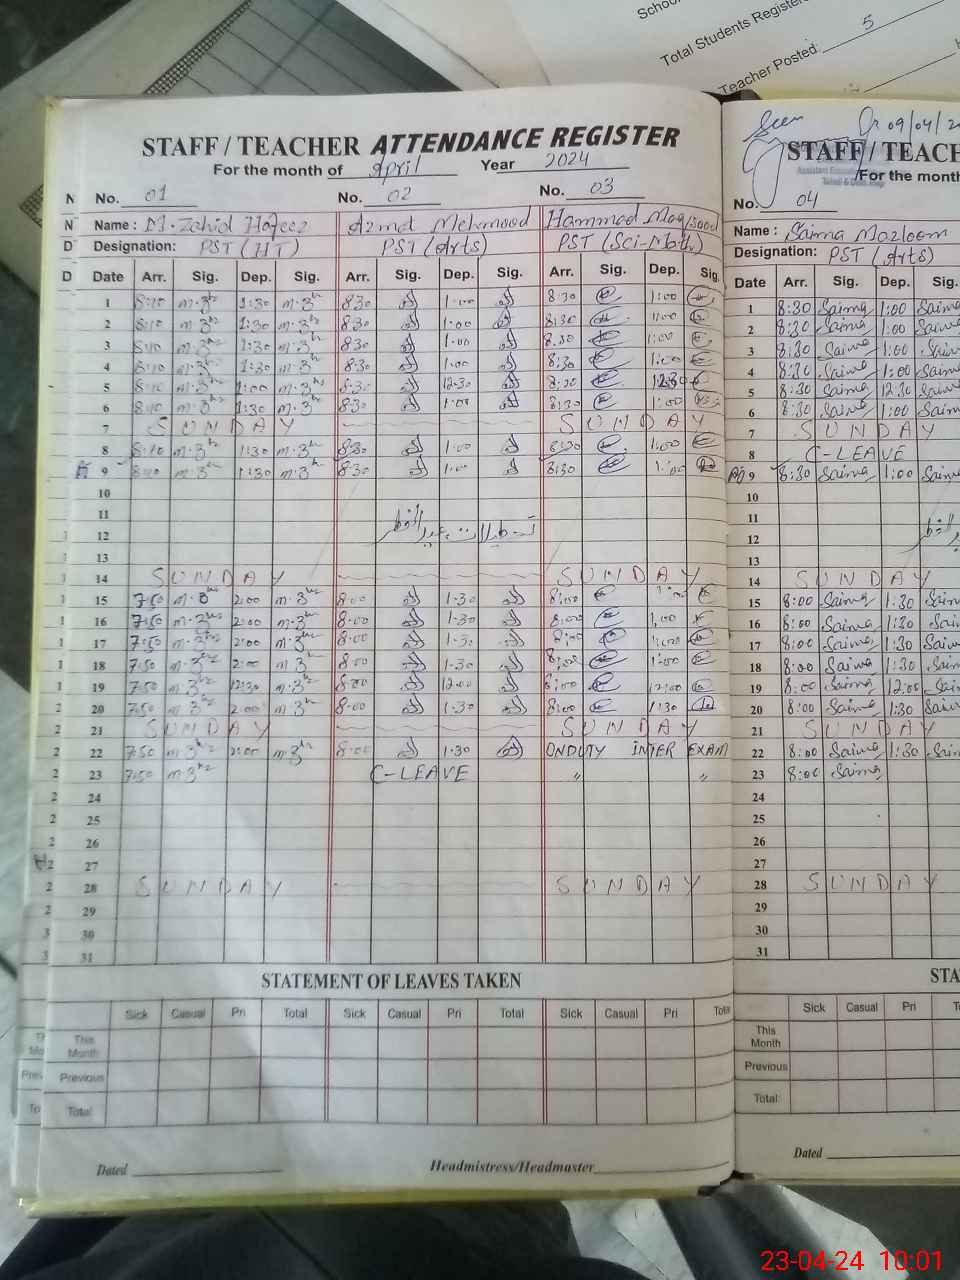 School
Total Students Registere
Teacher Posted: 5
STAFF / TEACHER ATTENDANCE REGISTER
For the month of April Year 2024
No. 01 No. 02 No. 03
Name : M. Zahid Hafeez Azmat Mehmood Hammad Maqsood
Designation: PST (HT) PST (Arts) PST (Sci-Math)
Date Arr. Sig. Dep. Sig. Arr. Sig. Dep. Sig. Arr. Sig. Dep. Sig.
1 8:10 1:30 8:30 1:00 8:30 1:00
2 8:10 1:30 8:30 1:00 8:30 1:00
3 8:10 1:30 8:30 1:00 8:30 1:00
4 8:10 1:30 8:30 1:00 8:30 1:00
5 8:10 1:00 8:30 12:30 8:30 12:30
6 8:10 1:30 8:30 1:00 8:30 1:00
7 SUNDAY SUNDAY
8 8:10 1:30 8:30 1:00 8:30 1:00
9 8:10 1:30 8:30 1:00 8:30 1:00
10
11
12 تعطیلات عید الفطر
13
14 SUNDAY SUNDAY
15 7:50 2:00 8:00 1:30 8:00
16 7:50 2:00 8:00 1:30 8:00 1:00
17 7:50 2:00 8:00 1:30 8:00 1:00
18 7:50 2:00 8:00 1:30 8:00 1:00
19 7:50 12:30 8:00 12:00 8:00 12:00
20 7:50 2:00 8:00 1:30 8:00 1:30
21 SUNDAY SUNDAY
22 7:50 2:00 8:00 1:30 ONDUTY INTER EXAM
23 7:50 C-LEAVE " "
24
25
26
27
28 SUNDAY SUNDAY
29
30
31
STATEMENT OF LEAVES TAKEN
Sick Casual Pri Total Sick Casual Pri Total Sick Casual Pri Total
This Month
Previous
Total
Dated Headmistress/Headmaster
Seen 09/04/20
STAFF / TEACH
For the month
No. 04
Name : Saima Mazloom
Designation: PST (Arts)
Date Arr. Sig. Dep. Sig.
1 8:30 Saima 1:00 Saima
2 8:30 Saima 1:00 Saima
3 8:30 Saima 1:00 Saim
4 8:30 Saima 1:00 Saima
5 8:30 Saima 12:30 Saima
6 8:30 Saima 1:00 Saima
7 SUNDAY
8 C-LEAVE
9 8:30 Saima 1:00 Saima
10
11
12
13
14 SUNDAY
15 8:00 Saima 1:30 Saim
16 8:00 Saima 1:30 Saim
17 8:00 Saima 1:30 Saim
18 8:00 Saima 1:30 Saim
19 8:00 Saima 12:00 Sai
20 8:00 Saima 1:30 Sai
21 SUNDAY
22 8:00 Saima 1:30 Sai
23 8:00 Saima
24
25
26
27
28 SUNDAY
29
30
31
STA
Sick Casual Pri T
This Month
Previous
Total
Dated
23-04-24 10:01